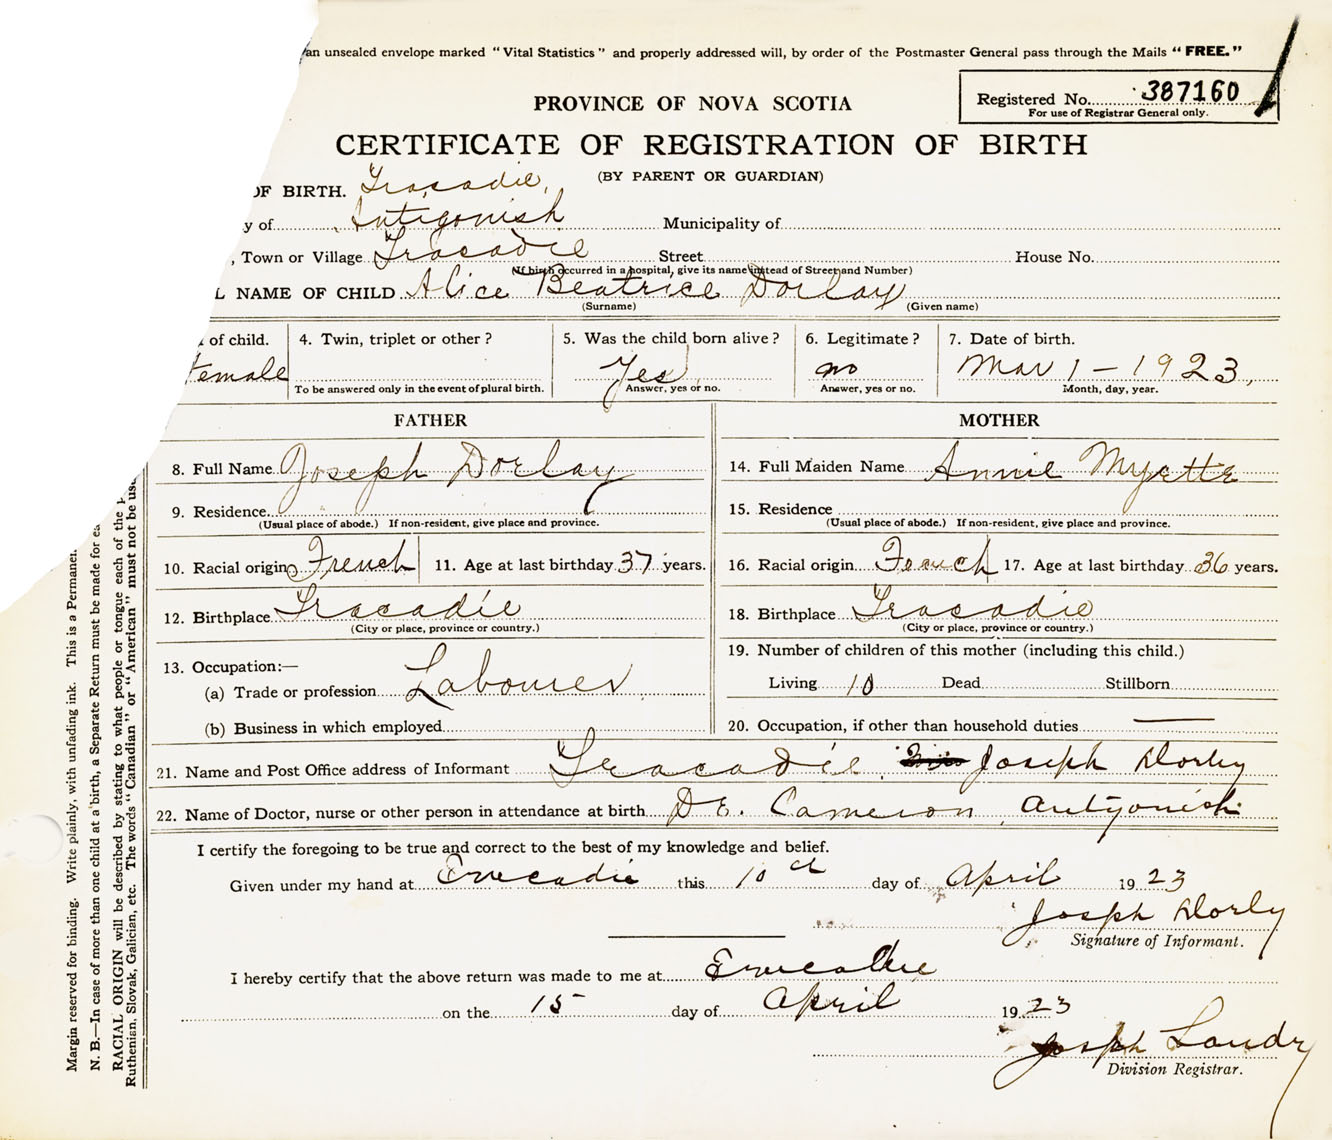 an unsealed envelope marked "Vital Statistics" and properly addressed will, by order of the Postmaster General pass through the Mails "FREE."
Registered No. 387160
For use of Registrar General only.
PROVINCE OF NOVA SCOTIA
CERTIFICATE OF REGISTRATION OF BIRTH
(BY PARENT OR GUARDIAN)
OF BIRTH. Tracadie,
y of Antigonish Municipality of
, Town or Village Tracadie Street House No.
(If birth occurred in a hospital, give its name instead of Street and Number)
L NAME OF CHILD Alice Beatrice Dorlay
(Surname) (Given name)
of child. 4. Twin, triplet or other? 5. Was the child born alive? 6. Legitimate? 7. Date of birth.
Female Yes no Mar 1 - 1923,
To be answered only in the event of plural birth. Answer, yes or no. Answer, yes or no. Month, day, year.
FATHER MOTHER
8. Full Name Joseph Dorlay 14. Full Maiden Name Annie Myette
9. Residence 15. Residence
(Usual place of abode.) If non-resident, give place and province. (Usual place of abode.) If non-resident, give place and province.
10. Racial origin French 11. Age at last birthday 37 years. 16. Racial origin French 17. Age at last birthday 36 years.
12. Birthplace Tracadie 18. Birthplace Tracadie
(City or place, province or country.) (City or place, province or country.)
13. Occupation:— 19. Number of children of this mother (including this child.)
(a) Trade or profession Labourer Living 10 Dead Stillborn
(b) Business in which employed 20. Occupation, if other than household duties —
21. Name and Post Office address of Informant Tracadie. Joseph Dorly
22. Name of Doctor, nurse or other person in attendance at birth Dr. Cameron, Antigonish
I certify the foregoing to be true and correct to the best of my knowledge and belief.
Given under my hand at Tracadie this 10th day of April 1923
Joseph Dorly
Signature of Informant.
I hereby certify that the above return was made to me at Tracadie
on the 15 day of April 1923
Joseph Landry
Division Registrar.
Margin reserved for binding. Write plainly, with unfading ink. This is a Permanen
N. B.—In case of more than one child at a birth, a Separate Return must be made for ea
RACIAL ORIGIN will be described by stating to what people or tongue each of the p
Ruthenian, Slovak, Galician, etc. The words "Canadian" or "American" must not be use